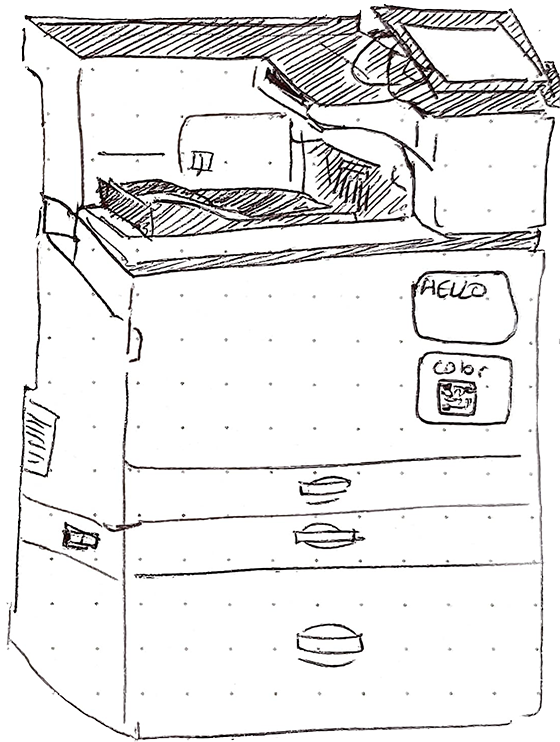 HELLO
color